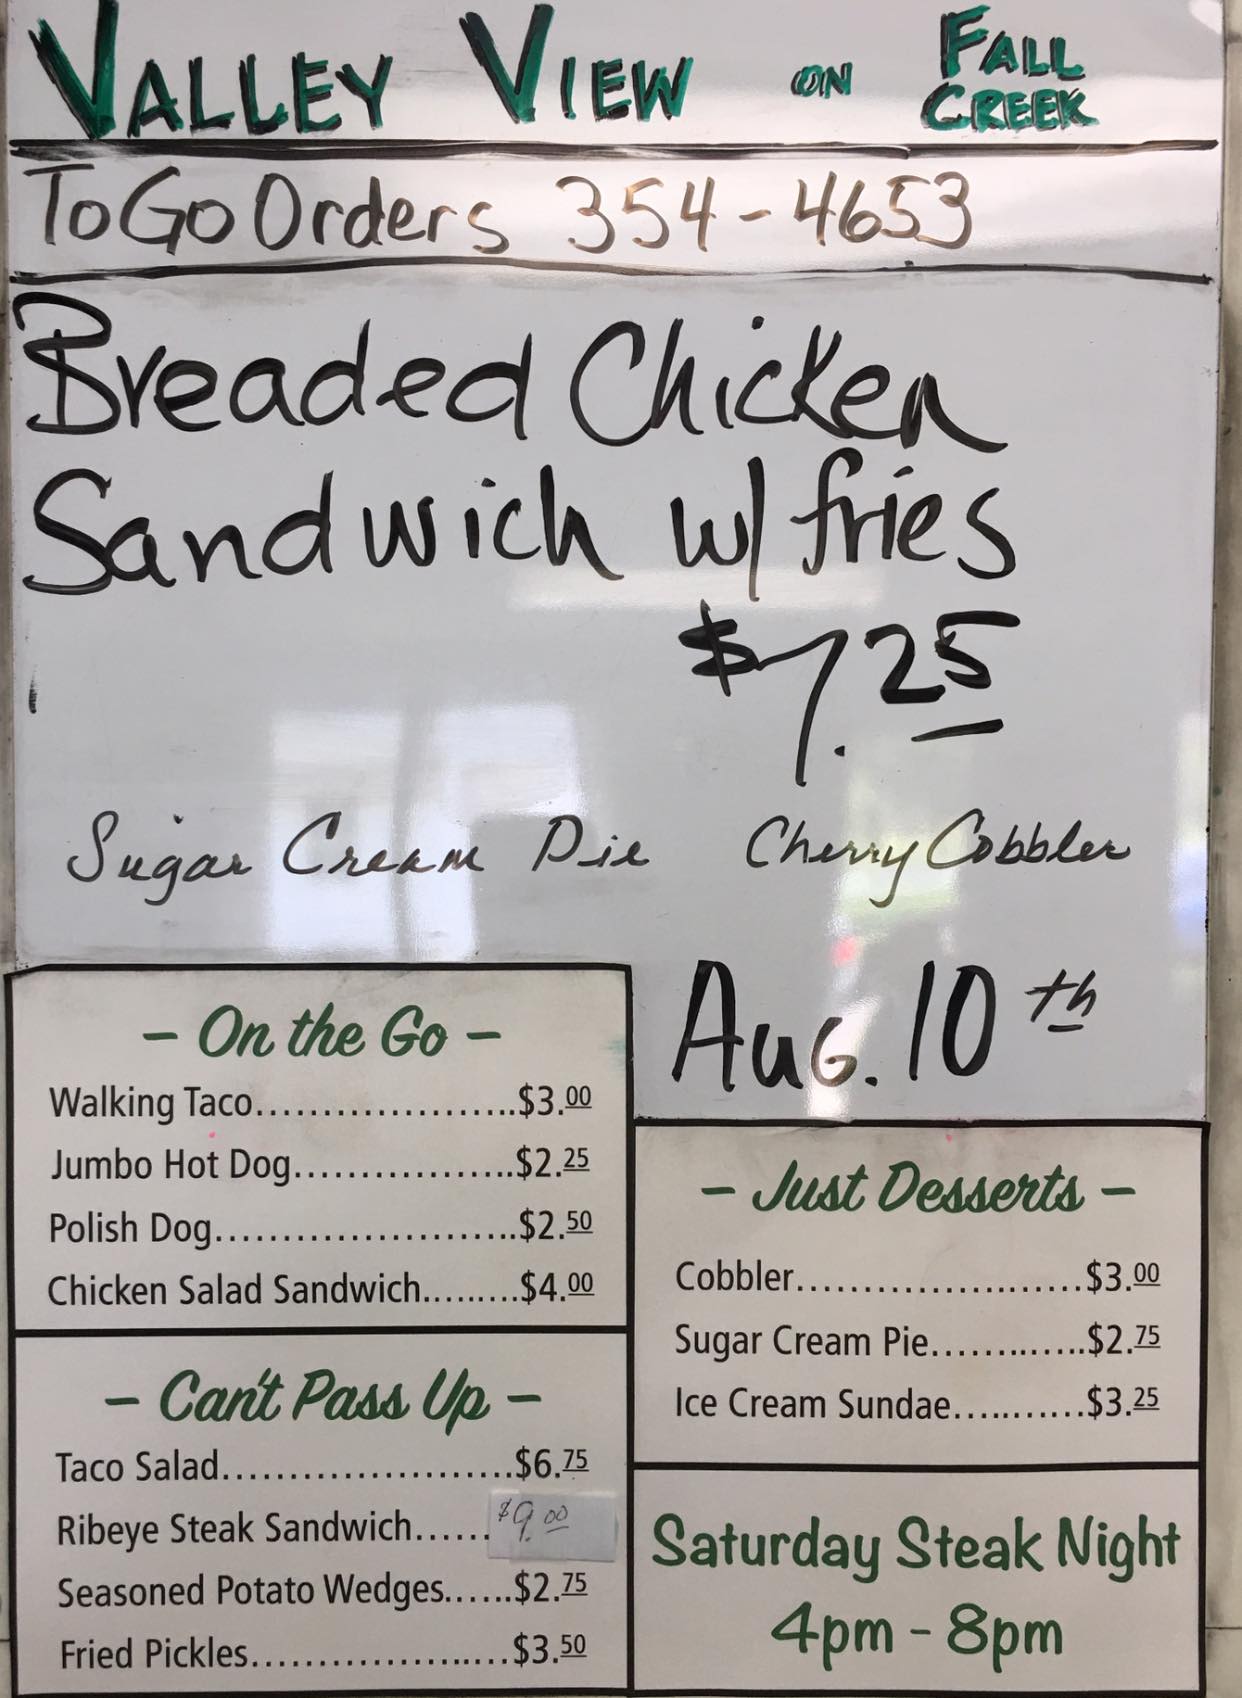 VALLEY VIEW ON FALL CREEK
To Go Orders 354-4653
Breaded Chicken
Sandwich w/ fries
$7.25
Sugar Cream Pie Cherry Cobbler
Aug. 10th
- On the Go -
Walking Taco....................$3.00
Jumbo Hot Dog.................$2.25
Polish Dog.......................$2.50
Chicken Salad Sandwich.........$4.00
- Can't Pass Up -
Taco Salad......................$6.75
Ribeye Steak Sandwich......$9.00
Seasoned Potato Wedges......$2.75
Fried Pickles....................$3.50
- Just Desserts -
Cobbler......................$3.00
Sugar Cream Pie............$2.75
Ice Cream Sundae..........$3.25
Saturday Steak Night
4pm - 8pm